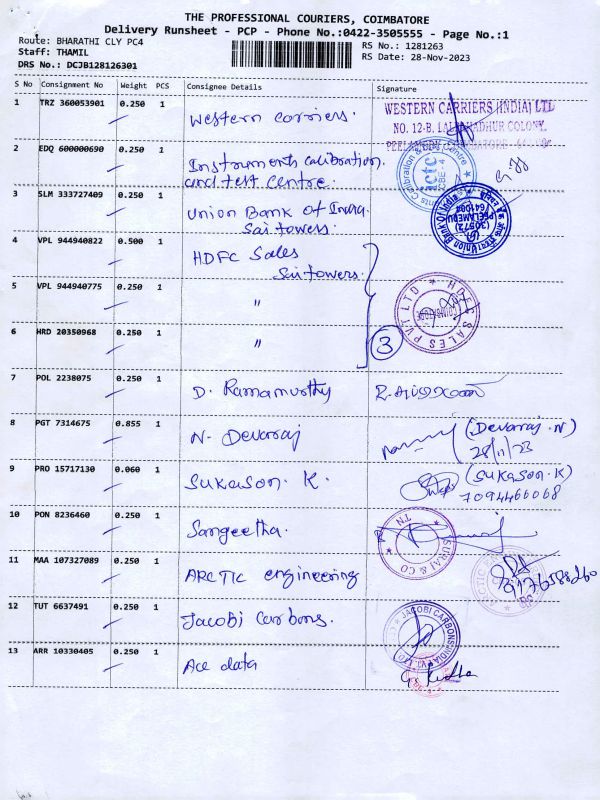 THE PROFESSIONAL COURIERS, COIMBATORE
Delivery Runsheet - PCP - Phone No.:0422-3505555 - Page No.:1
Route: BHARATHI CLY PC4
RS No.: 1281263
Staff: THAMIL
RS Date: 28-Nov-2023
DRS No.: DCJB128126301
S No Consignment No Weight PCS Consignee Details Signature
1 TRZ 360053901 0.250 1 Western carriers.
WESTERN CARRIERS (INDIA) LTD
NO. 12-B, LAL BAHADHUR COLONY,
2 EDQ 600000690 0.250 1 Instruments calibration
and test centre.
3 SLM 333727409 0.250 1 Union Bank of India.
Sai towers.
4 VPL 944940822 0.500 1 HDFC Sales
Sai towers.
5 VPL 944940775 0.250 1 "
6 HRD 20350968 0.250 1 "
3
HDFC SALES PVT LTD
7 POL 2238075 0.250 1 D. Ramamurthy
8 PGT 7314675 0.855 1 N. Devaraj
(Devaraj.N)
28/11/23
9 PRO 15717130 0.060 1 Sukason. K.
(SUKASON.K)
7094466068
10 PON 8236460 0.250 1 Sangeetha.
SURAJ & CO
TN
11 MAA 107327089 0.250 1 ARCTIC engineering
12 TUT 6637491 0.250 1 Jacobi Carbons.
JACOBI CARBONS INDIA PVT. LTD
13 ARR 10330405 0.250 1 Ace data